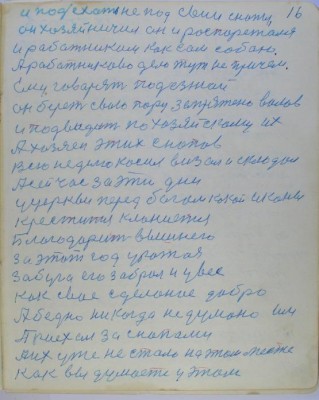 16
и подъехать не под свои снопы
он хозяйничил он и роспорежался
и работником как сам собою.
А работниково дело тут не причем.
Ему говорят подезжай
он берет свою пару запрежено волов
и подводит по хозяйскому их
А хозяен этих снопов
всю неделю косил вязал и складал
А сейчас за эти дни
у церкви перед богом
крестится кланяется
Благодарит
за этот год урожая
забула его забрал и увез
как свое сделаное добро
А бедно никогда не думано им
Приехал за снопами
Аих уже не стало на том месте
Как вы думаете у этом